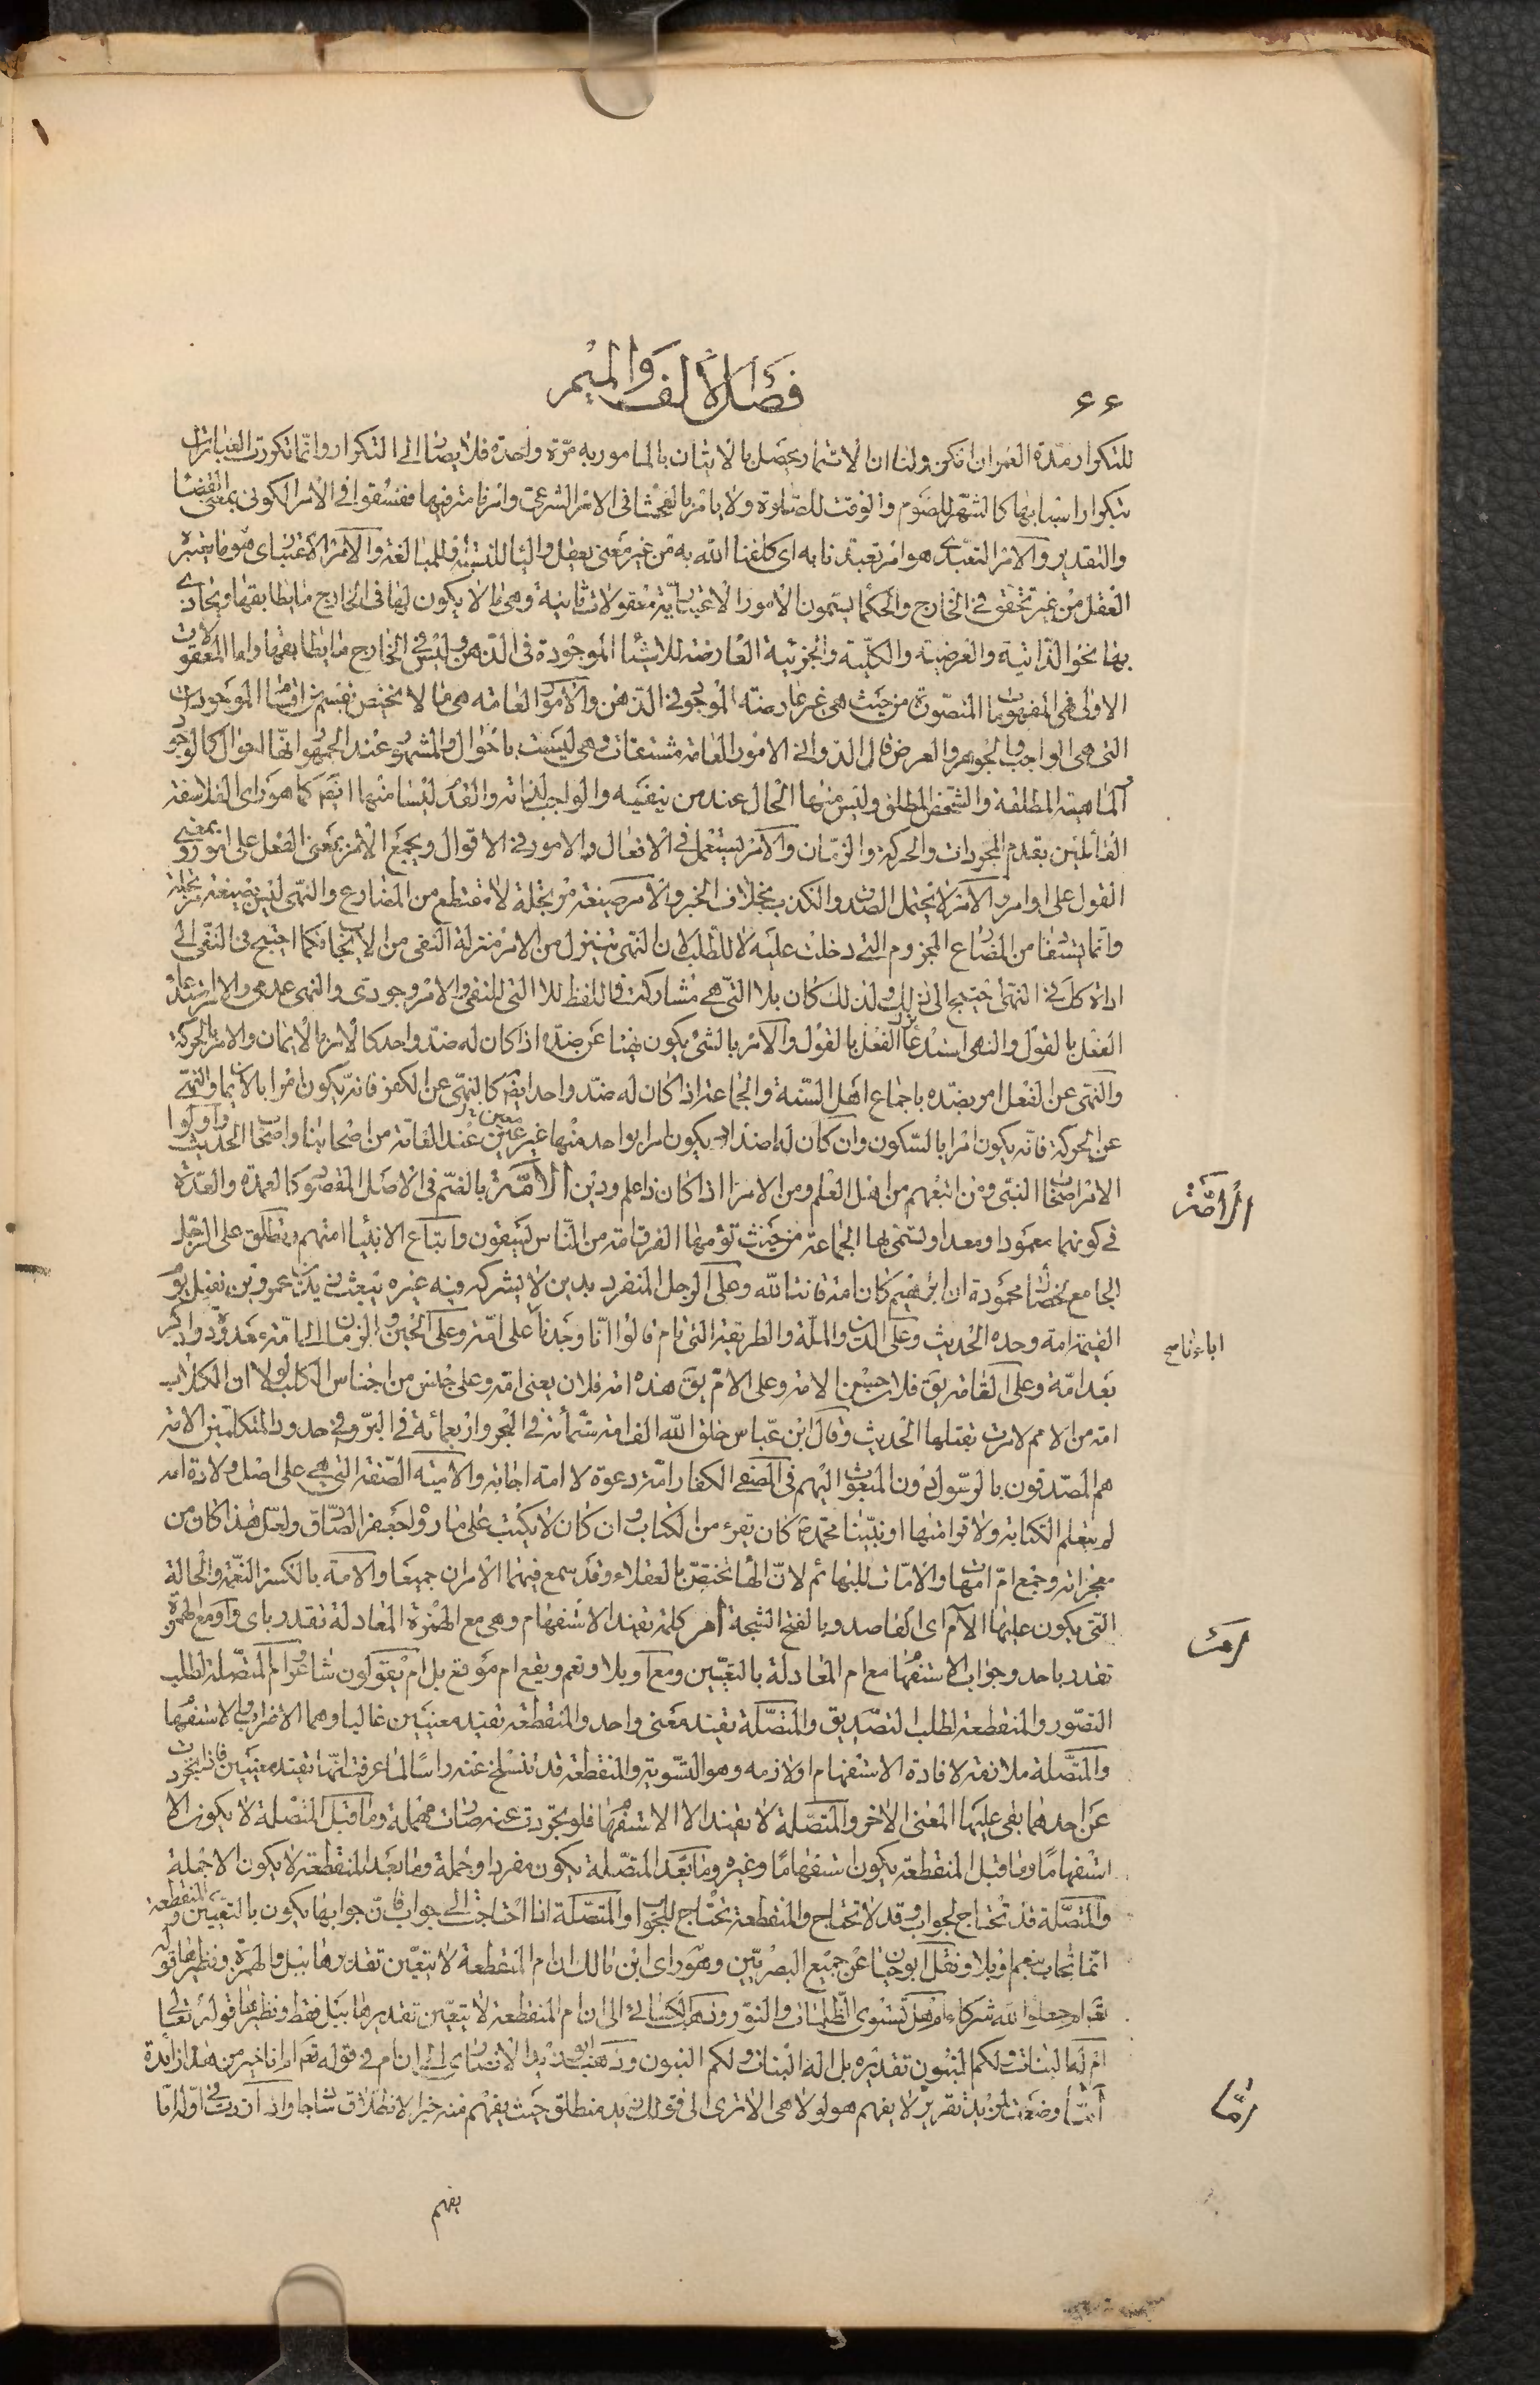 ٤٤
فصل الألف والميم
للتكرار مدة العمر ان امكن ولنا ان الائتمار يحصل بالاتيان بالمامور به مرة واحدة فلا يصار الى التكرار وانما تكررت العبادات
بتكرار اسبابها كالشهر للصوم والوقت للصلوة ولا يامر بالفحشا فى الامر الشرعى وامرنا مترفيها ففسقوا فى الامر الكونى بمعنى القضا
والتقدير والامر التعبدى هو امر تعبدنا به اى كلفنا الله به من غير معنى يعقل واليا للنسبة او للمبالغة والامر الاعتبارى هو ما يعتبره
العقل من غير تحقق فى الخارج والحكما يسمون الامور الاعتبارية معقولات ثانية وهى ما لا يكون لها فى الخارج ما يطابقها ويحاذى
بها نحو الذاتية والعرضية والكلية والجزئية العارضة للاشيا الموجودة فى الذهن وليس فى الخارج ما يطابقها واما المعقولات
الاولى فهى المفهومات المتصورة من حيث هى غير عارضة الموجود فى الذهن والامور العامة هى ما لا يختص بقسم من اقسام الموجودات
التى هى الواجب والجوهر والعرض قال الدوانى الامور العامة مشتقات وهى ليست باحوال والمشهور عند الجمهور انها احوال كالوجود
الماهية المطلقة والتشخص المطلق وليس منها الحال عند من ينفيه والواجب لذاته والقدم ليسا منها ايضا كما هو راى الفلاسفة
القائلين بقدم المجردات والحركة والزمان والامر يستعمل فى الافعال والامور فى الاقوال ويجمع الامر بمعنى الفعل على امور وبمعنى
القول على اوامر والامر لا يحتمل الصدق والكذب بخلاف الخبر والامر صيغة مرتجلة لا مقتطع من المضارع والنهى ليس بصيغة مرتجلة
وانما يستفاد من المضارع المجزوم التى دخلت عليه لا للطلب لان النهى يتنزل من الامر منزلة النفى من الايجاب فكما احتيج فى النفى الى
اداة كذلك فى النهى احتيج الى ذلك ولذلك كان بلا التى هى مشاركت فى اللفظ للا التى للنفى والامر وجودى والنهى عدمى والامر استدعا
الفعل بالقول والنهى استدعا ترك الفعل بالقول والامر بالشئ يكون نهيا عن ضده اذا كان له ضد واحد كالامر بالايمان والامر بالحركة
والنهى عن الفعل امر بضده باجماع اهل السنة والجماعة اذا كان له ضد واحد ايضا كالنهى عن الكفر فانه يكون امرا بالايمان والنهى
عن الحركة فانه يكون امرا بالسكون وان كان له اضداد يكون امرا بواحد منها غير معين عند العامة من اصحابنا واصحاب الحديث واولوا
الامر اصحاب النبى ومن اتبعهم من اهل العلم ومن الامرا اذا كان ذا علم ودين الأمة بالضم فى الاصل المقصود كالعمدة والعدة
فى كونهما معمودا ومعدا وتسمى بها الجماعة من حيث تؤمها الفرق امة من الناس يسقون واتباع الانبيا امتهم ويطلق على الرجل
الجامع لخصال محمودة ان ابرهيم كان امة قانتا لله وعلى الرجل المنفرد بدين لا يشركه فيه غيره يبعث زيد بن عمرو بن نفيل يوم
القيمة امة وحده الحديث وعلى الدين والملة والطريقة التى تام قالوا انا وجدنا على امة وعلى الحين والزمان الى امة معدودة وادكر
بعد امة وعلى القامة يق فلان حسن الامة وعلى الام يق هذه امة فلان يعنى امه وعلى جنس من اجناس الكلب لولا ان الكلاب
امة من الامم لامرت بقتلها الحديث وقال ابن عباس خلق الله الف امة ستمائة فى البحر واربعمائة فى البر وفى حدود المتكلمين الامة
هم المصدقون بالرسول دون المبعوث اليهم فى المصفى الكفار امة دعوة لا امة اجابة والامية الصفة التى هى على اصل ولادة امه
لم يتعلم الكتابة ولا قراءتها او نبينا محمدص كان يقرء من الكتاب وان كان لا يكتب على ما رواه جعفر الصادق ولعل هذا كان من
معجزاته وجمع ام امهات والامات للبهائم لان الها تختص بالعقلاء وقد سمع فيهما الامران جميعا والامة بالكسر النعمة والحالة
التى يكون عليها الآم اى القاصد وبالفتح الشجة أم كلمة تفيد الاستفهام وهى مع الهمزة المعادلة تقدر باى واو مع الهمزة
تقدر باحد وجواب الاستفهام مع ام المعادلة بالتعيين ومع او بلا ونعم ويقع ام موقع بل ام يقولون شاعر وام المتصلة لطلب
التصور والمنقطعة لطلب التصديق والمتصلة تفيد معنى واحد والمنقطعة تفيد معنيين غالبا وهما الاضراب والاستفهام
والمتصلة ملازمة لافادة الاستفهام او لازمه وهو التسوية والمنقطعة قد تنسلخ عنه راسا لما عرفت انها تفيد معنيين فاذا تجردت
عن احدهما بقى عليها المعنى الاخر والمتصلة لا تفيد الا الاستفهام فلو تجردت عنه صارت مهملة وما قبل المتصلة لا يكون الا
استفهاما وما قبل المنقطعة يكون استفهاما وغيره وما بعد المتصلة يكون مفردا وجملة وما بعد المنقطعة لا يكون الا جملة
والمتصلة قد تحتاج لجواب وقد لا تحتاج والمنقطعة تحتاج للجواب والمتصلة اذا احتاجت الى جواب فان جوابها يكون بالتعيين والمنقطعة
انما تجاب بنعم او بلا ونقل ابو حيان عن جميع البصريين وهو راى ابن مالك ان ام المنقطعة لا يتعين تقديرها ببل والهمزة ونظيرها قوله
تعالى ام جعلوا لله شركاء ام هل تستوى الظلمات والنور وذهب الكسائى الى ان ام المنقطعة لا يتعين تقديرها ببل فقط ونظيرها قوله تعالى
ام له البنات ولكم البنون تقديره بل اله البنات ولكم البنون وذهب ابو زيد الانصارى الى ان ام فى قوله تعالى ام انا خير من هذا زايدة
أمّا وضعت لمزيد تقرير لا يفهم هو لولا هى الا ترى الى قولك زيد منطلق حيث يفهم منه خبر الانطلاق ساذجا واذا زدت فى اوله اما
يفهم
الأمة
اباءنا صح
أم
أمّا